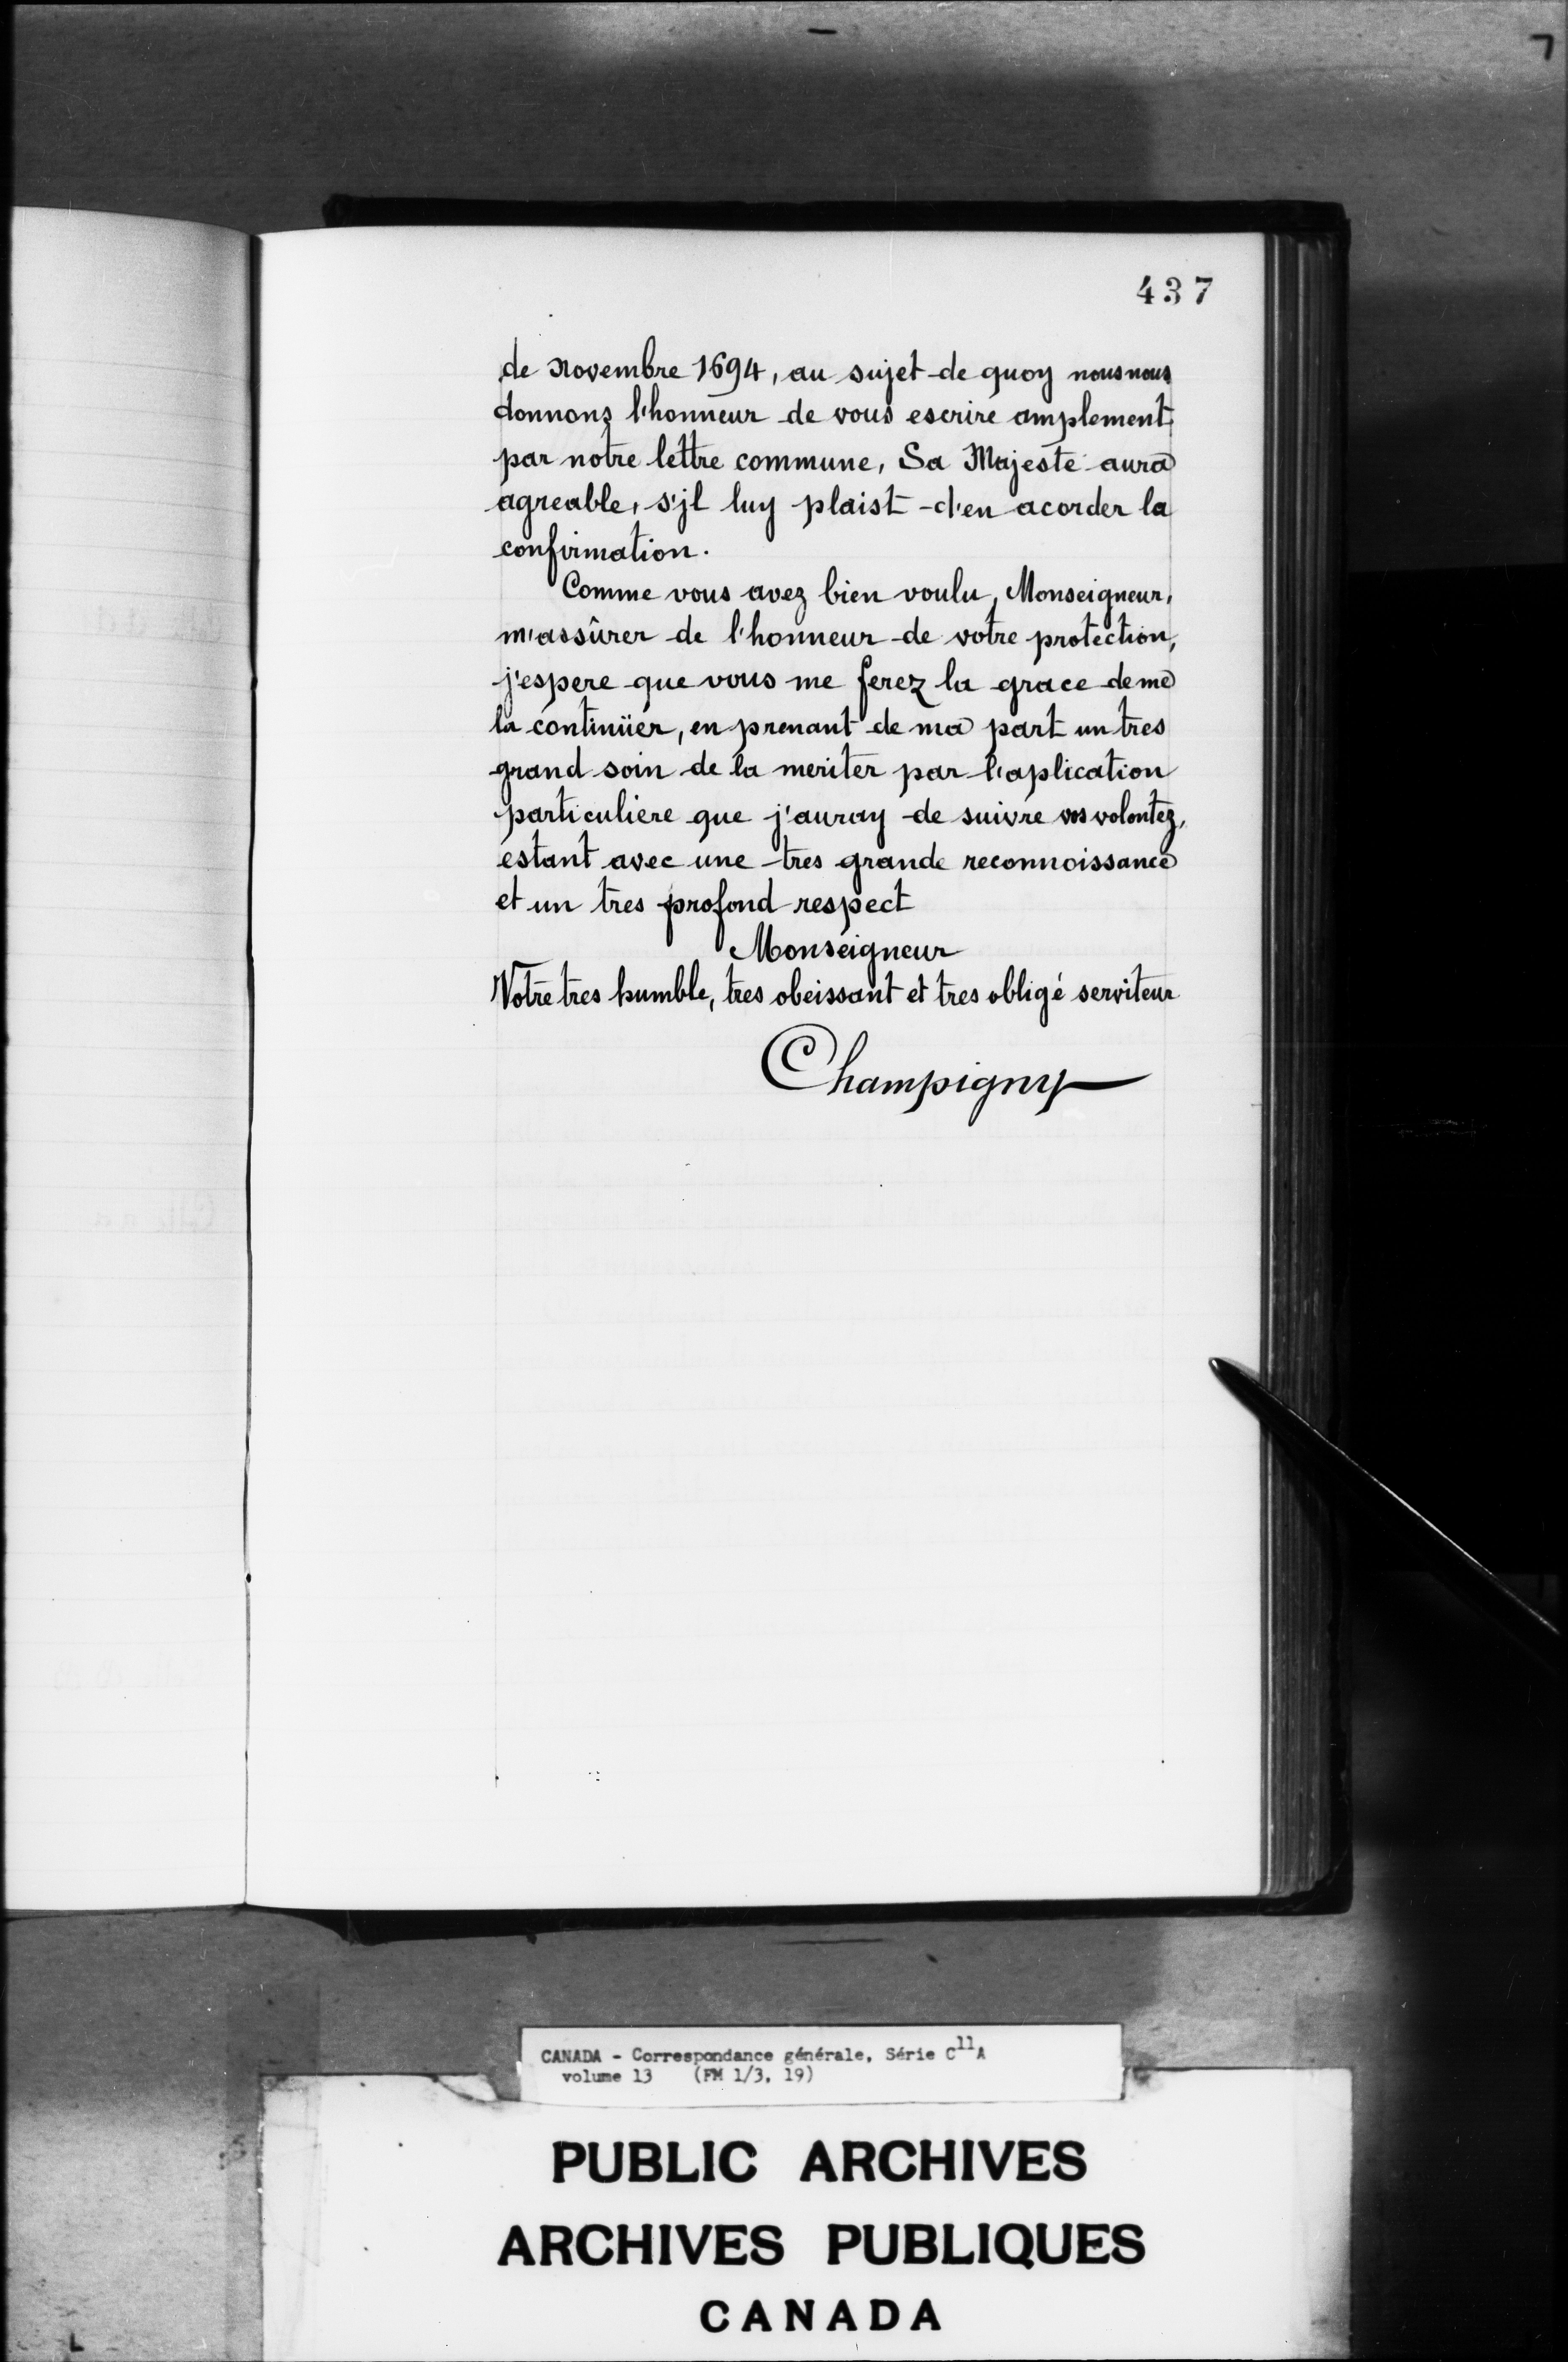 437
de novembre 1694, au sujet de quoy nous nous
donnons l'honneur de vous escrire amplement
par notre lettre commune, Sa Majesté aura
agreable, s'jl luy plaist d'en acorder la
confirmation.
Comme vous avez bien voulu, Monseigneur,
m'assûrer de l'honneur de votre protection,
j'espere que vous me ferez la grace de me
la continüer, en prenant de ma part un tres
grand soin de la meriter par l'aplication
particuliere que j'auray de suivre vos volontez,
estant avec une tres grande reconnoissance
et un tres profond respect
Monseigneur
Votre tres humble, tres obeissant et tres obligé serviteur
Champigny
CANADA - Correspondance générale, Série C11A
volume 13 (FM 1/3, 19)
PUBLIC ARCHIVES
ARCHIVES PUBLIQUES
CANADA